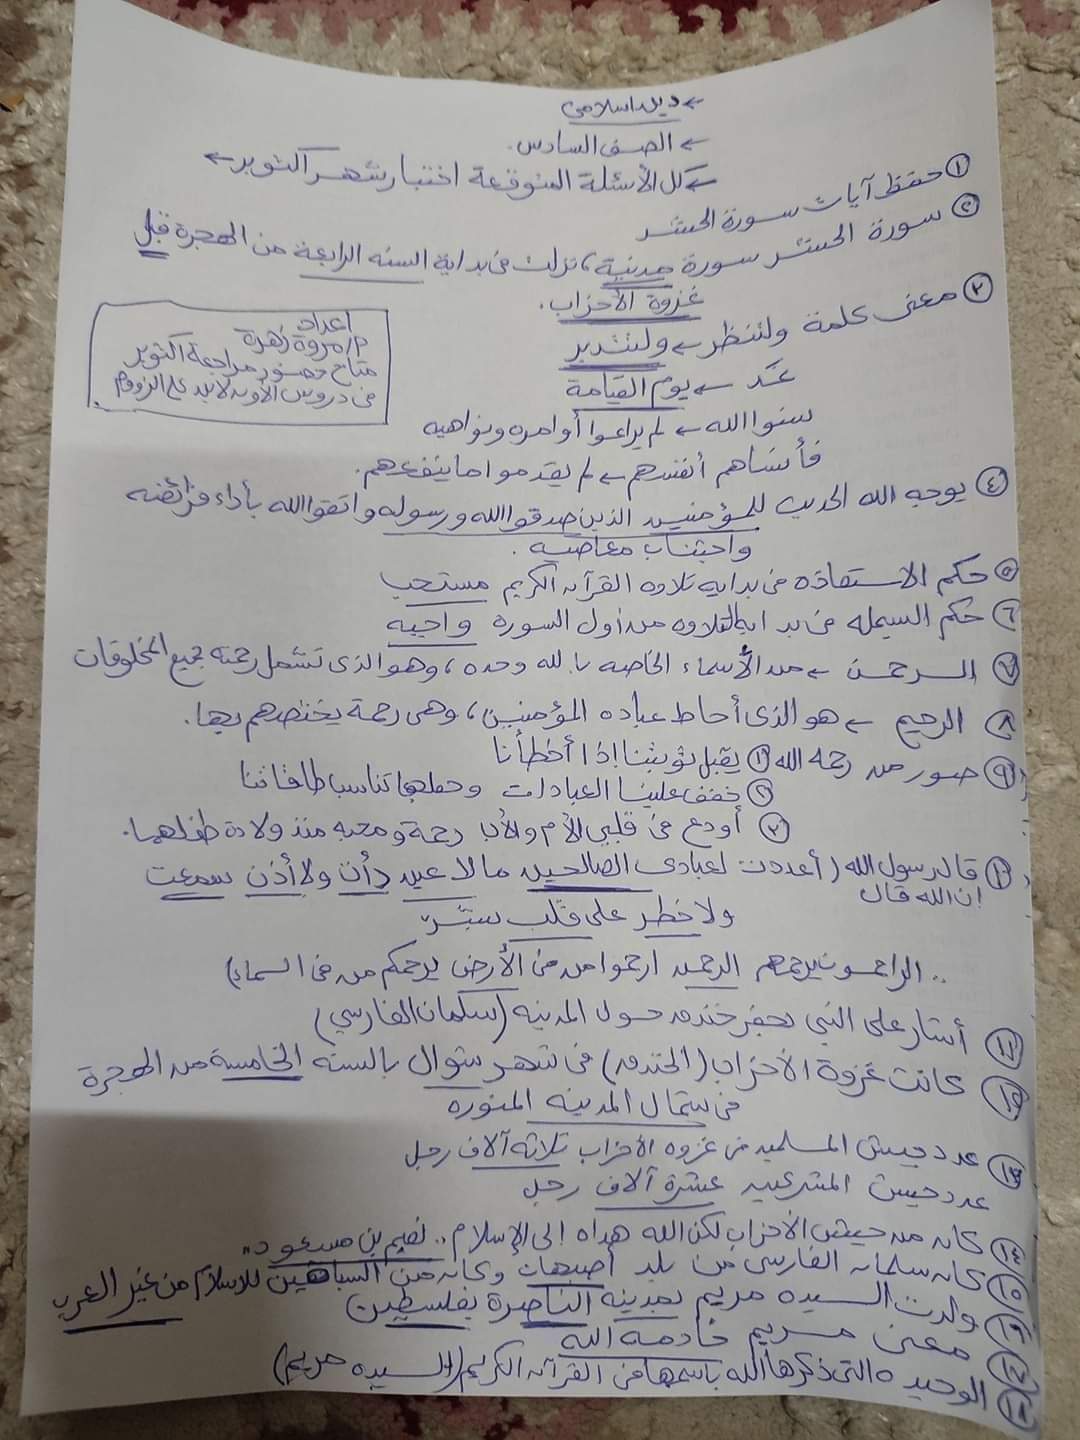 ← دين اسلامى
← الصف السادس.
← كل الأسئلة المتوقعة اختبار شهر اكتوبر ←
① حفظ آيات سورة الحشر
② سورة الحشر سورة مدنية، نزلت فى بداية السنه الرابعة من الهجرة قبل
غزوة الأحزاب.
③ معنى كلمة ولتنظر ← ولتتدبر
غد ← يوم القيامة
نسوا الله ← لم يراعوا أوامره ونواهيه
فأنساهم أنفسهم ← لم يقدموا ما ينفعهم.
اعداد
م/ مروة زهرة
متاح حضور مراجعة اكتوبر
فى دروس الأونلاين على الزووم
④ يوجه الله الحديث للمؤمنين الذين صدقوا الله ورسوله واتقوا الله بأداء فرائضه
واجتناب معاصيه.
⑤ حكم الاستعاذه فى بدايه تلاوه القرآن الكريم مستحب
⑥ حكم البسمله فى بدايه التلاوه من أول السوره واجبه
⑦ الرحمن ← من الأسماء الخاصه بالله وحده، وهو الذى تشمل رحمته جميع المخلوقات
⑧ الرحيم ← هو الذى أحاط عباده المؤمنين، وهى رحمة يختصهم بها.
⑨ صور من رحمه الله ① يقبل توبتنا إذا أخطأنا
② خفف علينا العبادات وجعلها تناسب طاقاتنا
③ أودع فى قلبي الأم والأب رحمة ومحبه منذ ولادة طفلهما.
⑩ قال رسول الله (أعددت لعبادى الصالحين مالا عين رأت ولا أذن سمعت
إن الله قال
ولا خطر على قلب بشر"
.. الراحمون يرحمهم الرحمن ارحموا من فى الأرض يرحمكم من فى السماء)
⑪ أشار على النبي بحفر خندق حول المدينه (سلمان الفارسي)
⑫ كانت غزوة الأحزاب (الخندق) فى شهر شوال بالسنه الخامسة من الهجرة
فى شمال المدينه المنوره
⑬ عدد جيش المسلمين فى غزوه الأحزاب ثلاثه آلاف رجل
عدد جيش المشركين عشرة آلاف رجل
⑭ كان من جيش الأحزاب لكن الله هداه إلى الإسلام .. نعيم بن مسعود"
⑮ كان سلمان الفارسى من بلد أصبهان وكان من السابقين للاسلام من غير العرب
⑯ ولدت السيده مريم بمدينه الناصرة بفلسطين
⑰ معنى مريم خادمه الله
⑱ الوحيده التى ذكرها الله باسمها فى القرآن الكريم (السيده مريم)